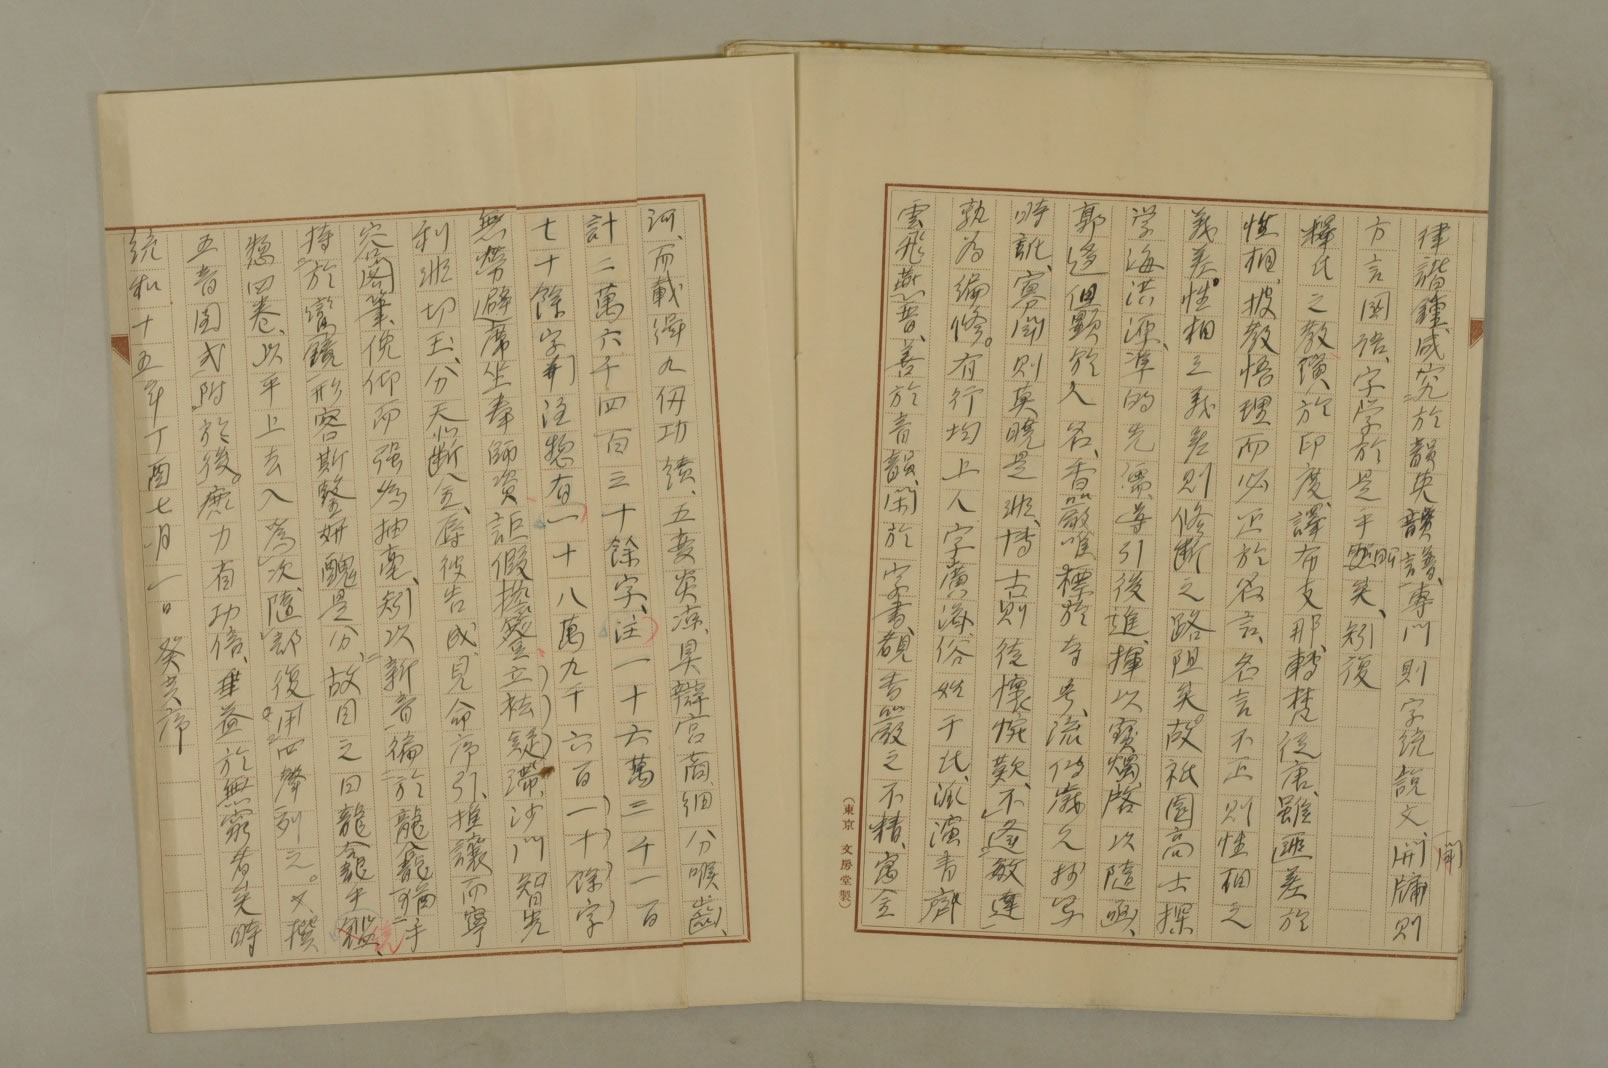 律諧鍾、咸究於韻英韻譜、専門則字統説文、開牖則
方言国語、字学於是乎昭矣、矧復
釋氏之教、演於印度、譯布支那、轉梵従唐、雖匪差於
性相、披教悟理而必正於名言、名言不正則性相之
義差。性相之義差則修断之路阻矣。故祇園高士探
学海洪源、準的先儒、導引後進、揮以寳燭、啓以隨函、
郭迻但顕於人名、香嚴唯標於寺号、流傳歳久、抄写
時訛、寡聞則莫曉是非、博古則徒懐惋歎、不逢敏達
孰為編修。有行均上人字廣済、俗姓于氏、派演青齊
雲飛燕晋、善於音韻、閑於字書、覩香嚴之不精、寓金
河、而載緝九仭功績、五変炎凉、具辯宮商、細分喉齒、
計二萬六千四百三十餘字、注一十六萬三千一百
七十餘字、并注惣有一十八萬九千六百一十餘字
無勞避席坐奉師資、詎假擔簦立祛疑滯、沙門智光
利非切玉、分天断金、辱彼告成、見命序引、推讓而寧
容閣筆、俛仰而強為抽毫、矧以新音徧於龍龕猶手
持於寳鏡形容斯鑒妍醜是分、故目之曰龍龕手鑑、
惣四巻、以平上去入為次、隨部復用四聲列之。又撰
五音図式附於後。庶力省功倍、垂益於無窮者矣時
統和十五年丁酉七月一日癸亥序
(東京 文房堂製)